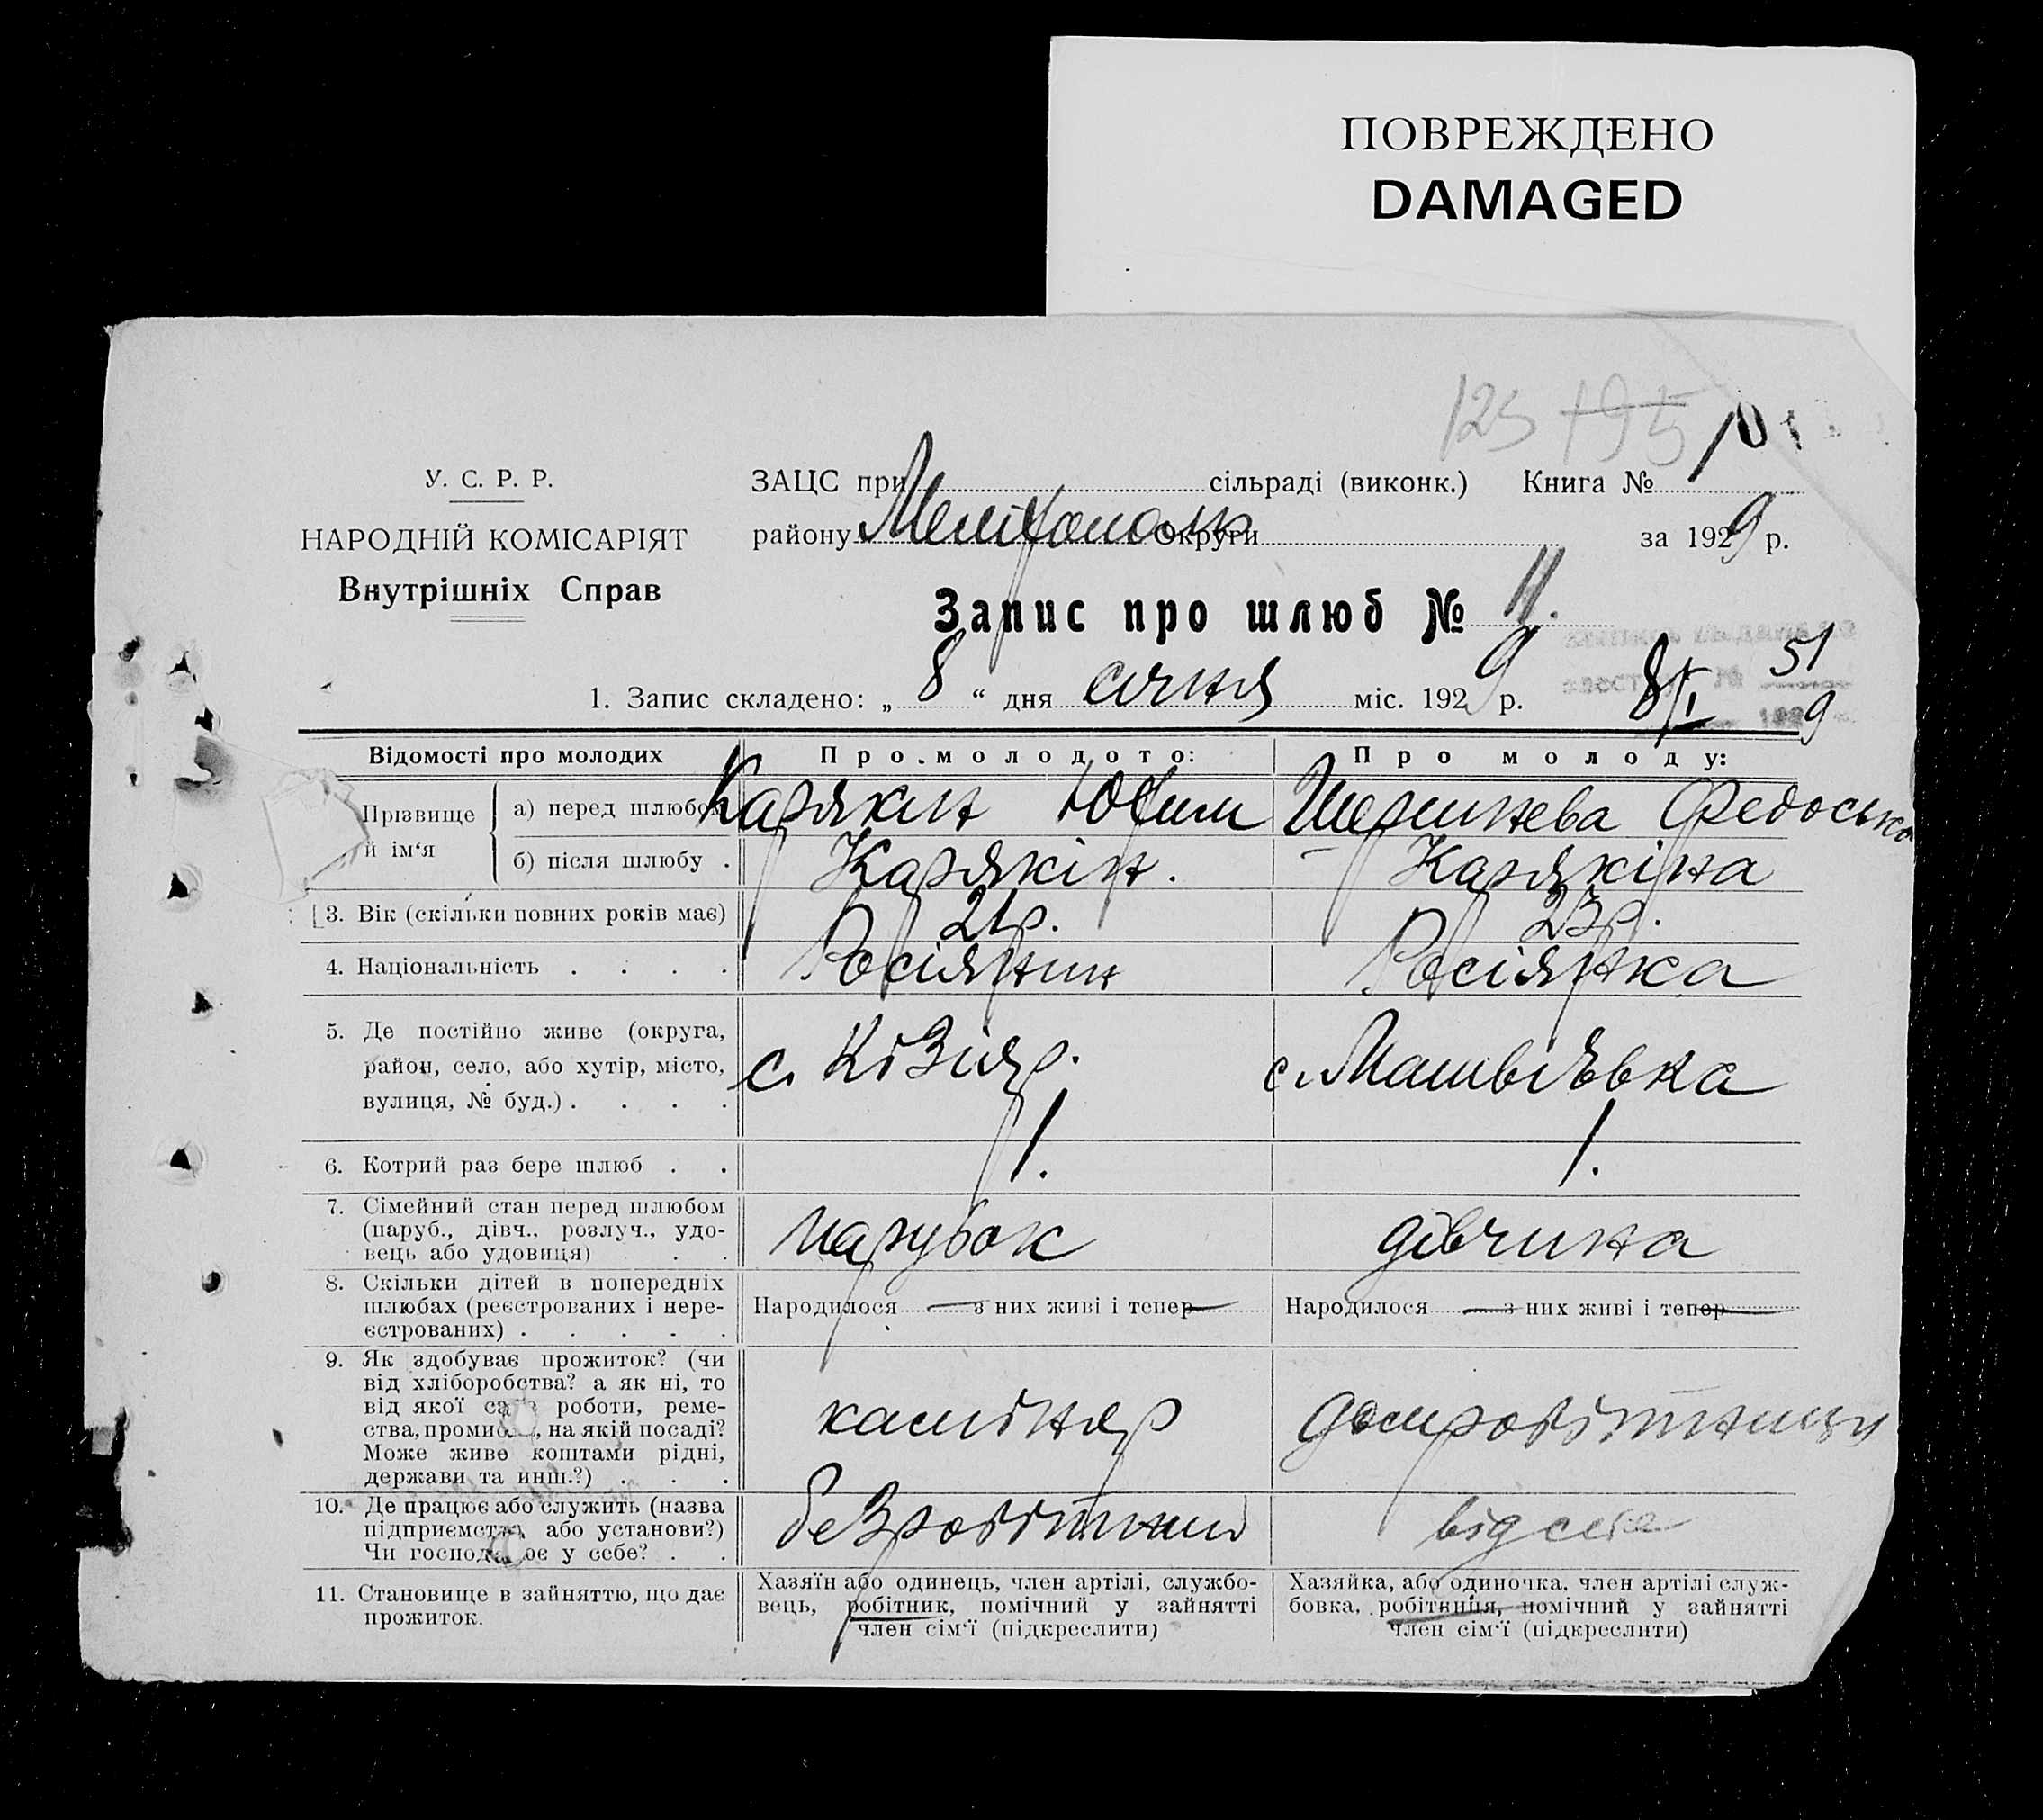 ПОВРЕЖДЕНО
DAMAGED
125 195 10
У. С. Р. Р.
НАРОДНІЙ КОМІСАРІЯТ
Внутрішніх Справ
ЗАЦС при сільраді (виконк.) Книга №
району Мелітополь округи за 1929 р.
Запис про шлюб № 11.
1. Запис складено: „ 8 “ дня січня міс. 1929 р. 8/I 51 9
Відомості про молодих
Про молодого:
Про молоду:
Прізвище й ім‘я
а) перед шлюбом
Карякин Юхим
Федоська
б) після шлюбу .
Карякін.
Карякіна
3. Вік (скільки повних років має)
21р.
23р.
4. Національність . . . .
Росіянин
Росіянка
5. Де постійно живе (округа,
район, село, або хутір, місто,
вулиця, № буд.) . . . .
с. Кізіяр.
с. Матвіївка
6. Котрий раз бере шлюб . .
1.
1.
7. Сімейний стан перед шлюбом
(паруб., дівч., розлуч., удо-
вець або удовиця) . .
парубок
дівчина
8. Скільки дітей в попередніх
шлюбах (реєстрованих і нере-
єстрованих) . . . . .
Народилося — з них живі і тепер —
Народилося — з них живі і тепер —
9. Як здобуває прожиток? (чи
від хліборобства? а як ні, то
від якої роботи, реме-
ства, на якій посаді?
Може живе коштами рідні,
держави та инш.?) . . .
каміняр
домробітниця
10. Де працює або служить (назва
підприємства, або установи?)
Чи господарює у себе? . .
безробітний
11. Становище в зайняттю, що дає
прожиток.
Хазяїн або одинець, член артілі, службо-
вець, робітник, помічний у зайнятті
член сім‘ї (підкреслити)
Хазяйка, або одиночка, член артілі служ-
бовка, робітниця, помічний у зайнятті
член сім‘ї (підкреслити)